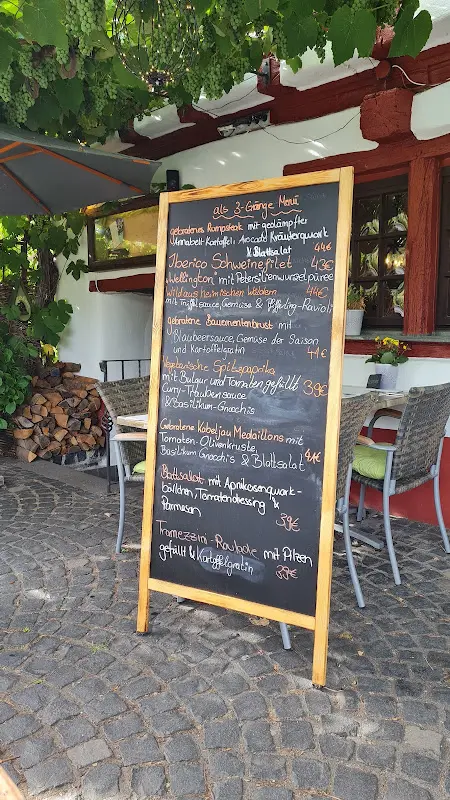 als 3-Gänge Menü
gebratenes Rumpsteak mit gedämpfter
Annabell-Kartoffel, Avocado Kräuterquark
& Blattsalat 44€
Iberico Schweinefilet 43€
Wellington, mit Petersilienwurzelpüree
Wild aus heimischen Wäldern 44€
mit Trüffelsauce, Gemüse & Pfifferling-Ravioli
gebratene Bauernentenbrust mit
Blaubeersauce, Gemüse der Saison
und Kartoffelgratin 41€
Vegetarische Spitzpaprika
mit Bulgur und Tomaten gefüllt 39€
Curry-Traubensauce
& Basilikum-Gnocchis
Gebratene Kabeljau Medaillons mit
Tomaten-Olivenkruste,
Basilikum Gnocchis & Blattsalat 41€
Blattsalat mit Aprikosenquark-
bällchen, Tomatendressing &
Parmesan 39€
Tramezzini-Roulade mit Pilzen
gefüllt & Kartoffelgratin 39€